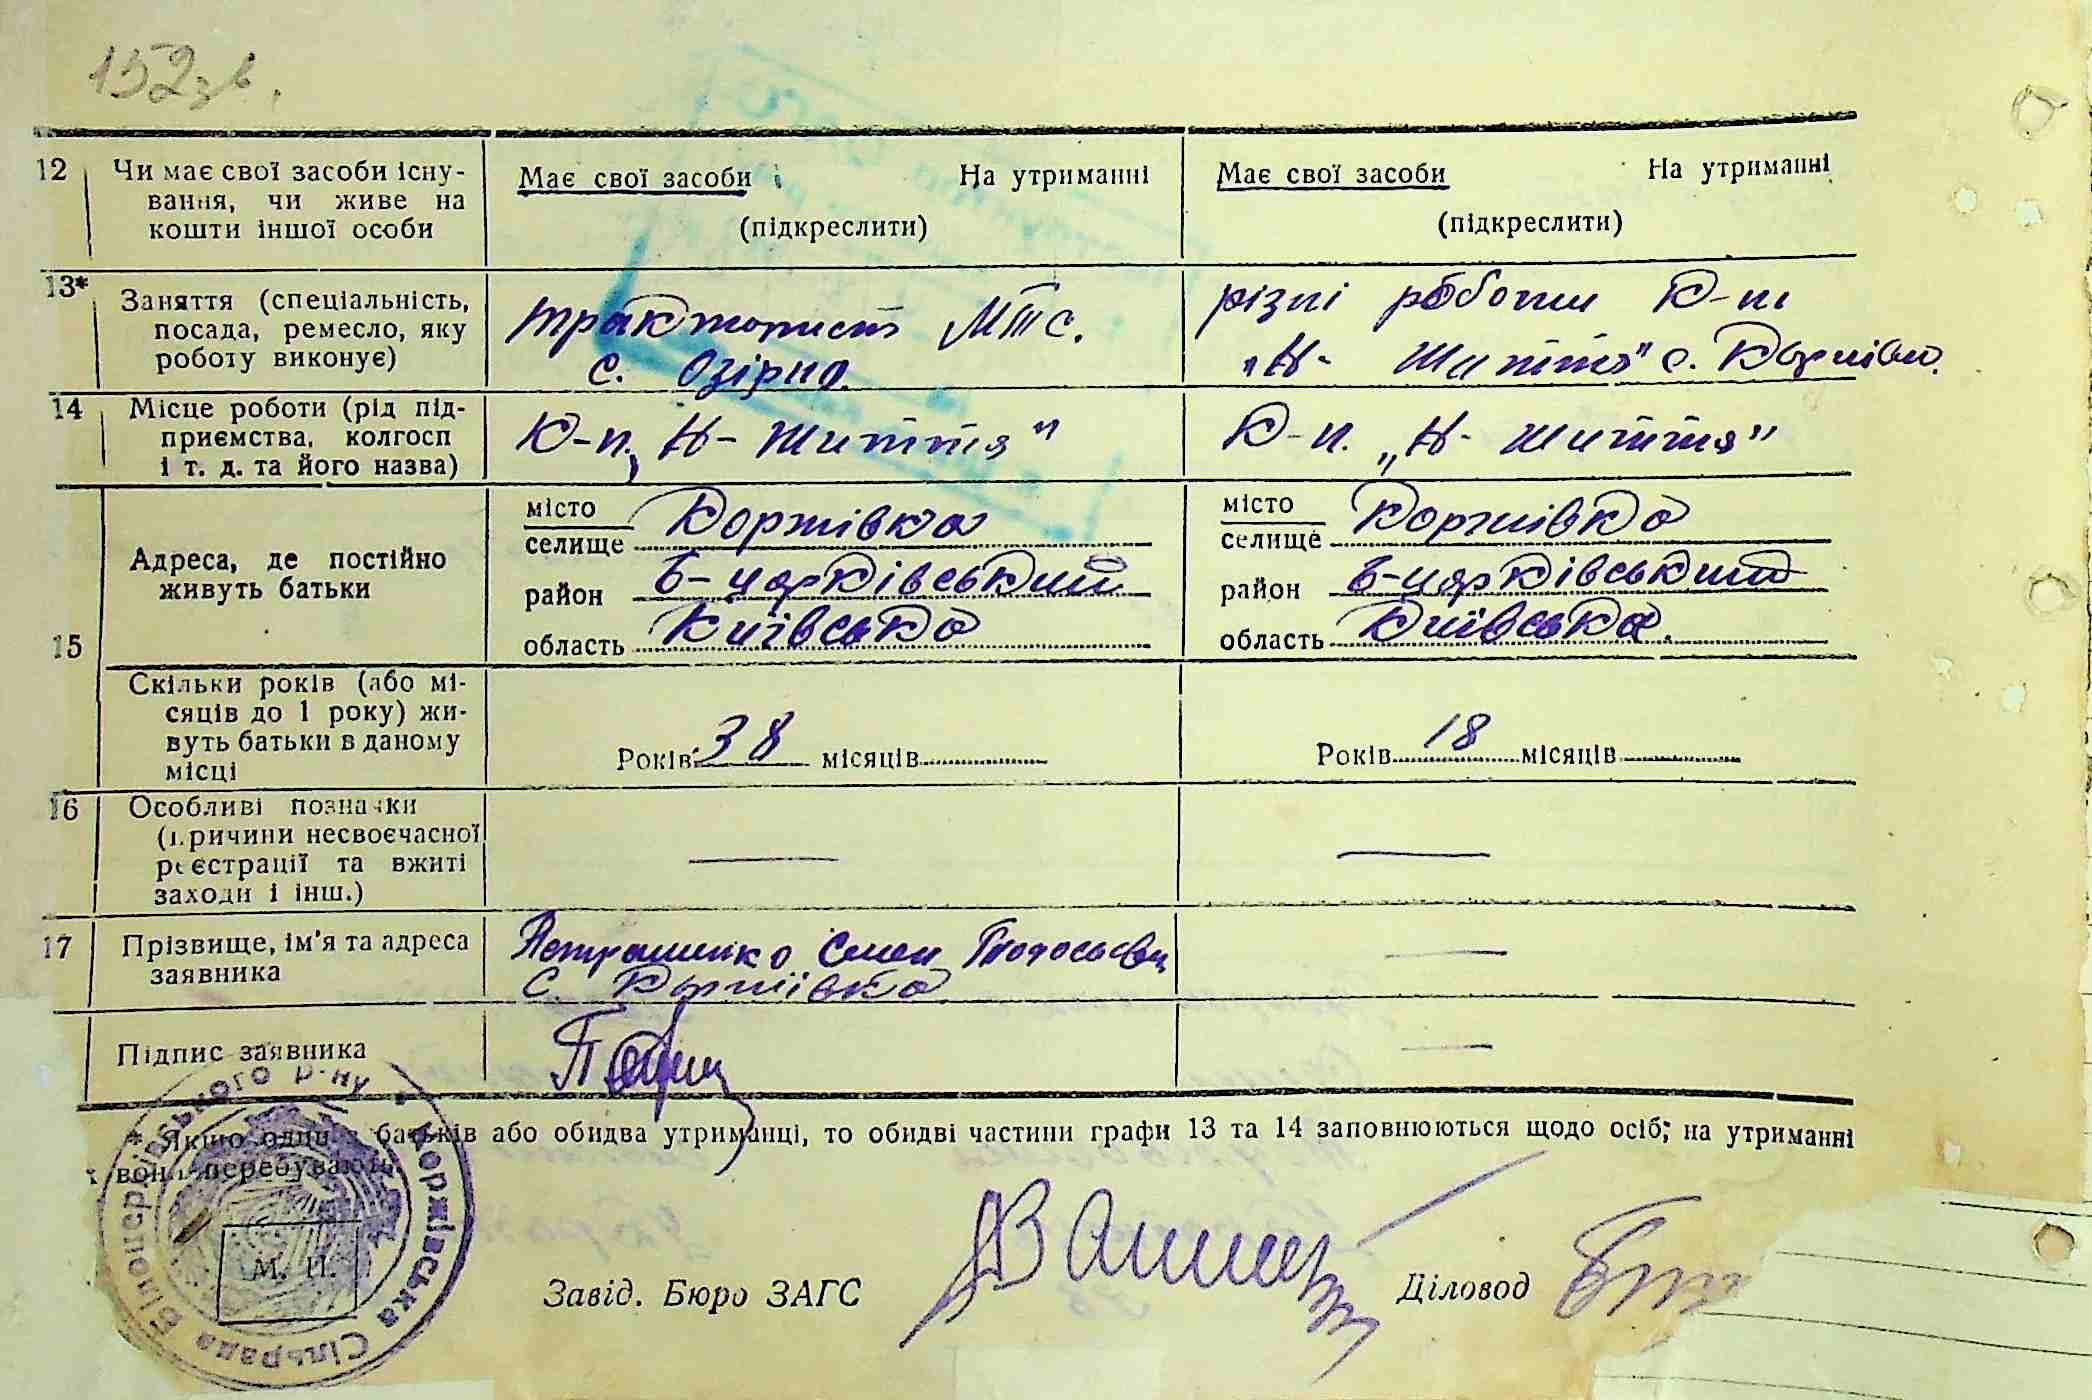 152 зв.
12 Чи має свої засоби існу-
вання, чи живе на
кошти іншої особи
Має свої засоби На утриманні
(підкреслити)
Має свої засоби На утриманні
(підкреслити)
13* Заняття (спеціальність,
посада, ремесло, яку
роботу виконує)
тракторист МТС.
с. Озірна
різні роботи К-п
"Н- Життя" с. Коржівка.
14 Місце роботи (рід під-
приємства, колгосп
і т. д. та його назва)
К-п. „Н- Життя"
К-п. „Н- Життя"
15
Адреса, де постійно
живуть батьки
місто
селище Коржівка
район Б-Церківський
область Київська
місто
селище Коржівка
район Б-Церківський
область Київська.
Скільки років (або мі-
сяців до 1 року) жи-
вуть батьки в даному
місці
Років 38 місяців
Років 18 місяців
16 Особливі позначки
(причини несвоєчасної
реєстрації та вжиті
заходи і інш.)
17 Прізвище, ім'я та адреса
заявника
Петрашенко Семен
с. Коржівка
Підпис заявника
* Якщо один з батьків або обидва утриманці, то обидві частини графи 13 та 14 заповнюються щодо осіб; на утриманні
вони перебувають.
Коржівська Сільрада Білоцерківського р-ну
М. П.
Завід. Бюро ЗАГС
Діловод